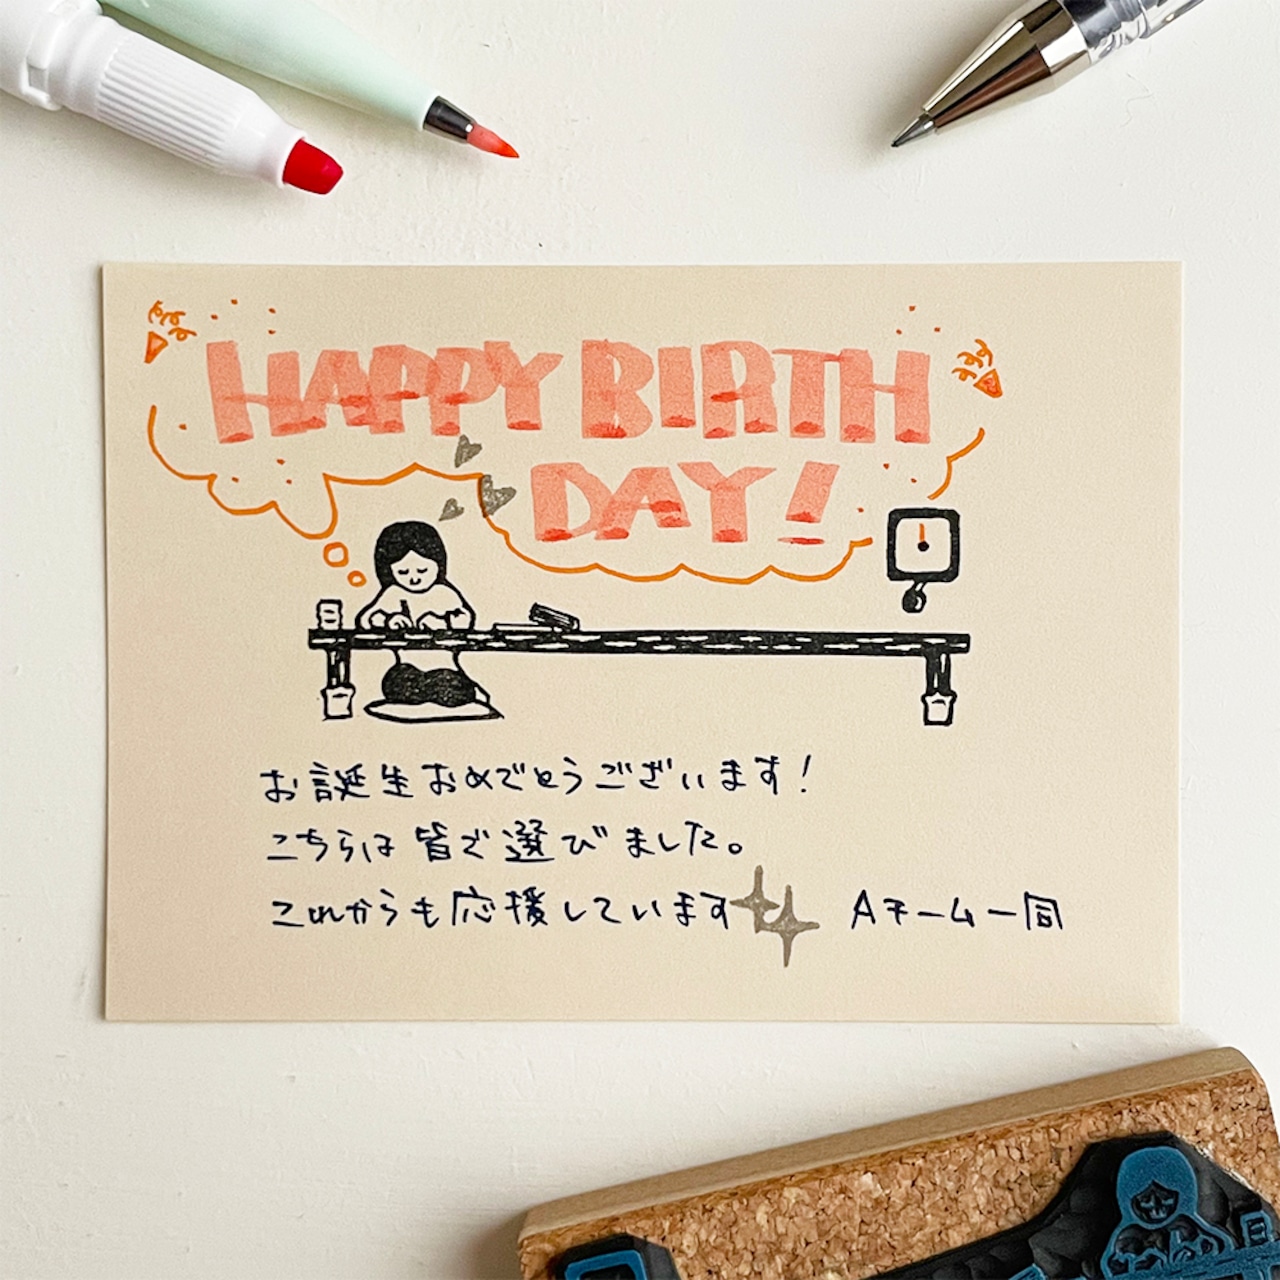 HAPPY BIRTH
DAY!
お誕生おめでとうございます!
こちらは皆で選びました。
これからも応援しています
Aチーム一同